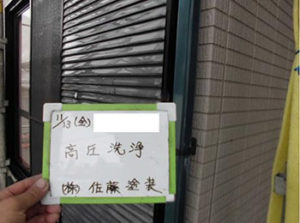 11/13(金)
高圧洗浄
(株) 佐藤塗装